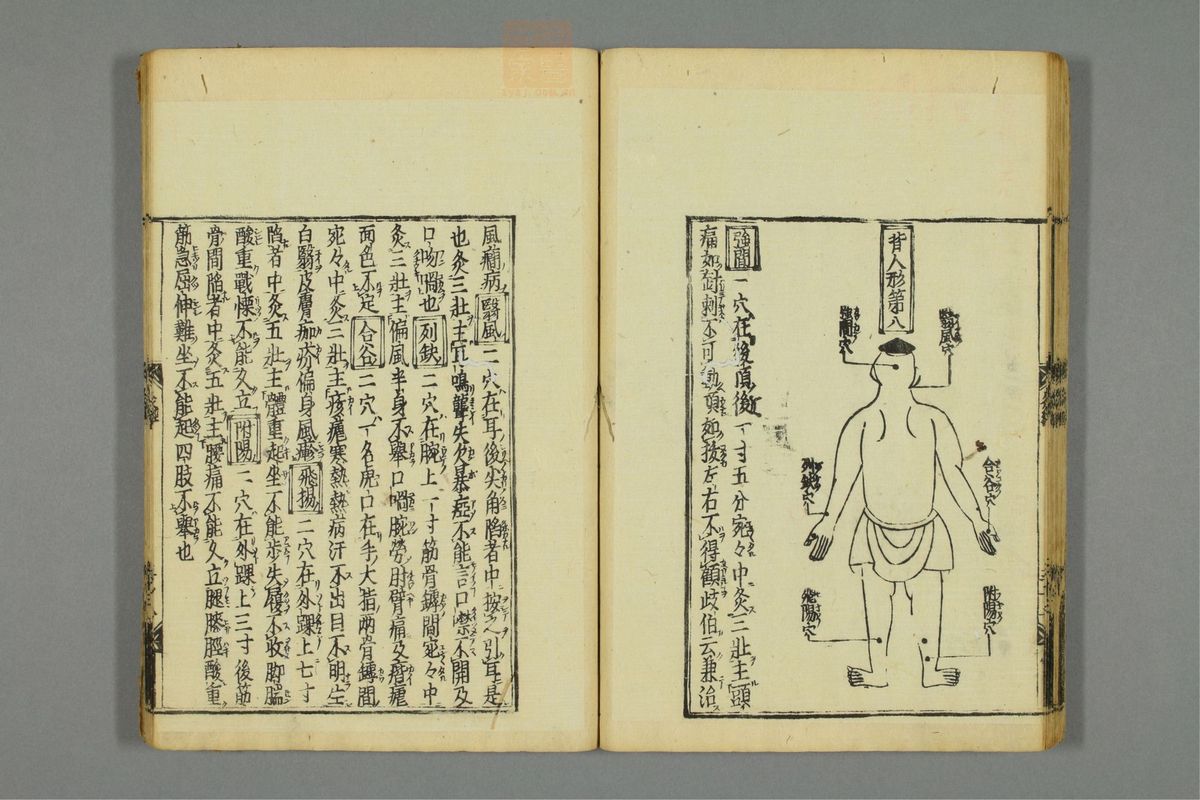 背人形第八
翳風穴
強間穴
合谷穴
列缺穴
附陽穴
飛陽穴
強間 一穴在後頂後一寸五分宛々中灸三壯主頭
痛如針刺不可動項如拔左右不得顧歧伯云兼治
風癎病 翳風 二穴在耳後尖角陷者中按之引耳是
也灸三壯主耳鳴聾失欠暴瘂不能言口噤不開及
口吻喎也 列缺 二穴在腕上一寸筋骨罅間宛々中
灸三壯主偏風半身不舉口喎腕勞肘臂痛及痎瘧
面色不定 合谷 二穴一名虎口在手大指兩骨罅間
宛々中灸三壯主痎瘧寒熱熱病汗不出目不明生
白翳皮膚痂疥偏身風𤺋 飛揚 二穴在外踝上七寸
陷者中灸五壯主體重起坐不能步失履不收脚腨
酸重戰慄不能久立 附陽 二穴在外踝上三寸後筋
骨間陷者中灸五壯主腰痛不能久立腿膝脛酸重
筋急屈伸難坐不能起四肢不舉也